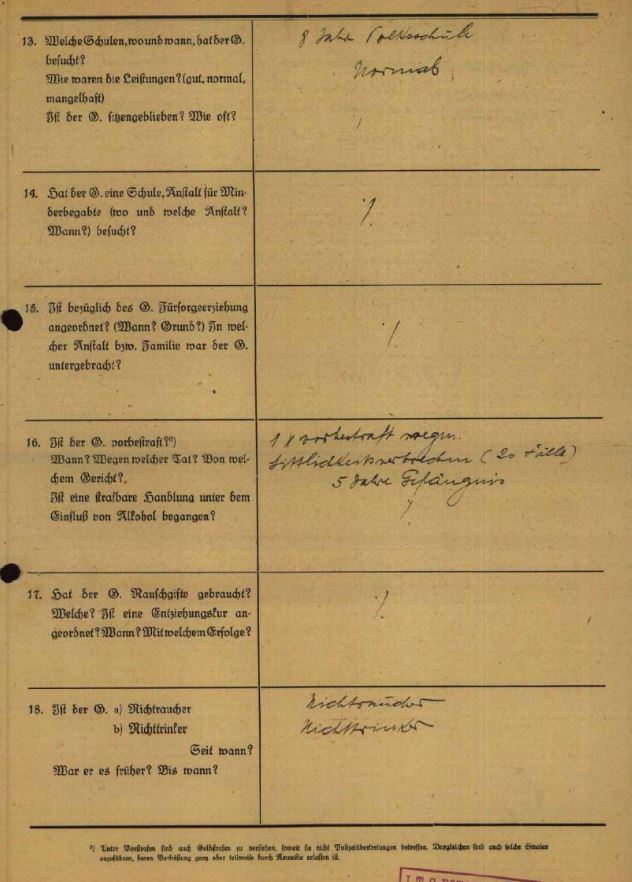 13. Welche Schulen, wo und wann, hat der G.
besucht?
Wie waren die Leistungen? (gut, normal,
mangelhaft)
Ist der G. sitzengeblieben? Wie oft?
8 Jahre Volksschule
Normal
14. Hat der G. eine Schule, Anstalt für Min-
derbegabte (wo und welche Anstalt?
Wann?) besucht?
⁒
15. Ist bezüglich des G. Fürsorgeerziehung
angeordnet? (Wann? Grund?) In wel-
cher Anstalt bzw. Familie war der G.
untergebracht?
⁒
16. Ist der G. vorbestraft?³)
Wann? Wegen welcher Tat? Von wel-
chem Gericht?
Ist eine strafbare Handlung unter dem
Einfluß von Alkohol begangen?
1 x vorbestraft wegen
Sittlichkeitsverbrechen (20 Fälle)
5 Jahre Gefängnis
17. Hat der G. Rauschgifte gebraucht?
Welche? Ist eine Entziehungskur an-
geordnet? Wann? Mit welchem Erfolge?
⁒
18. Ist der G. a) Nichtraucher
b) Nichttrinker
Seit wann?
War er es früher? Bis wann?
Nichtraucher
Nichttrinker
Unter Vorstrafen sind auch Geldstrafen zu verstehen, soweit sie nicht Polizeiübertretungen betreffen. Desgleichen sind auch solche Strafen
anzuführen, deren Verbüßung ganz oder teilweise durch Amnestie erlassen ist.